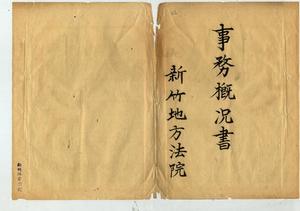 事務概况書
新竹地方法院